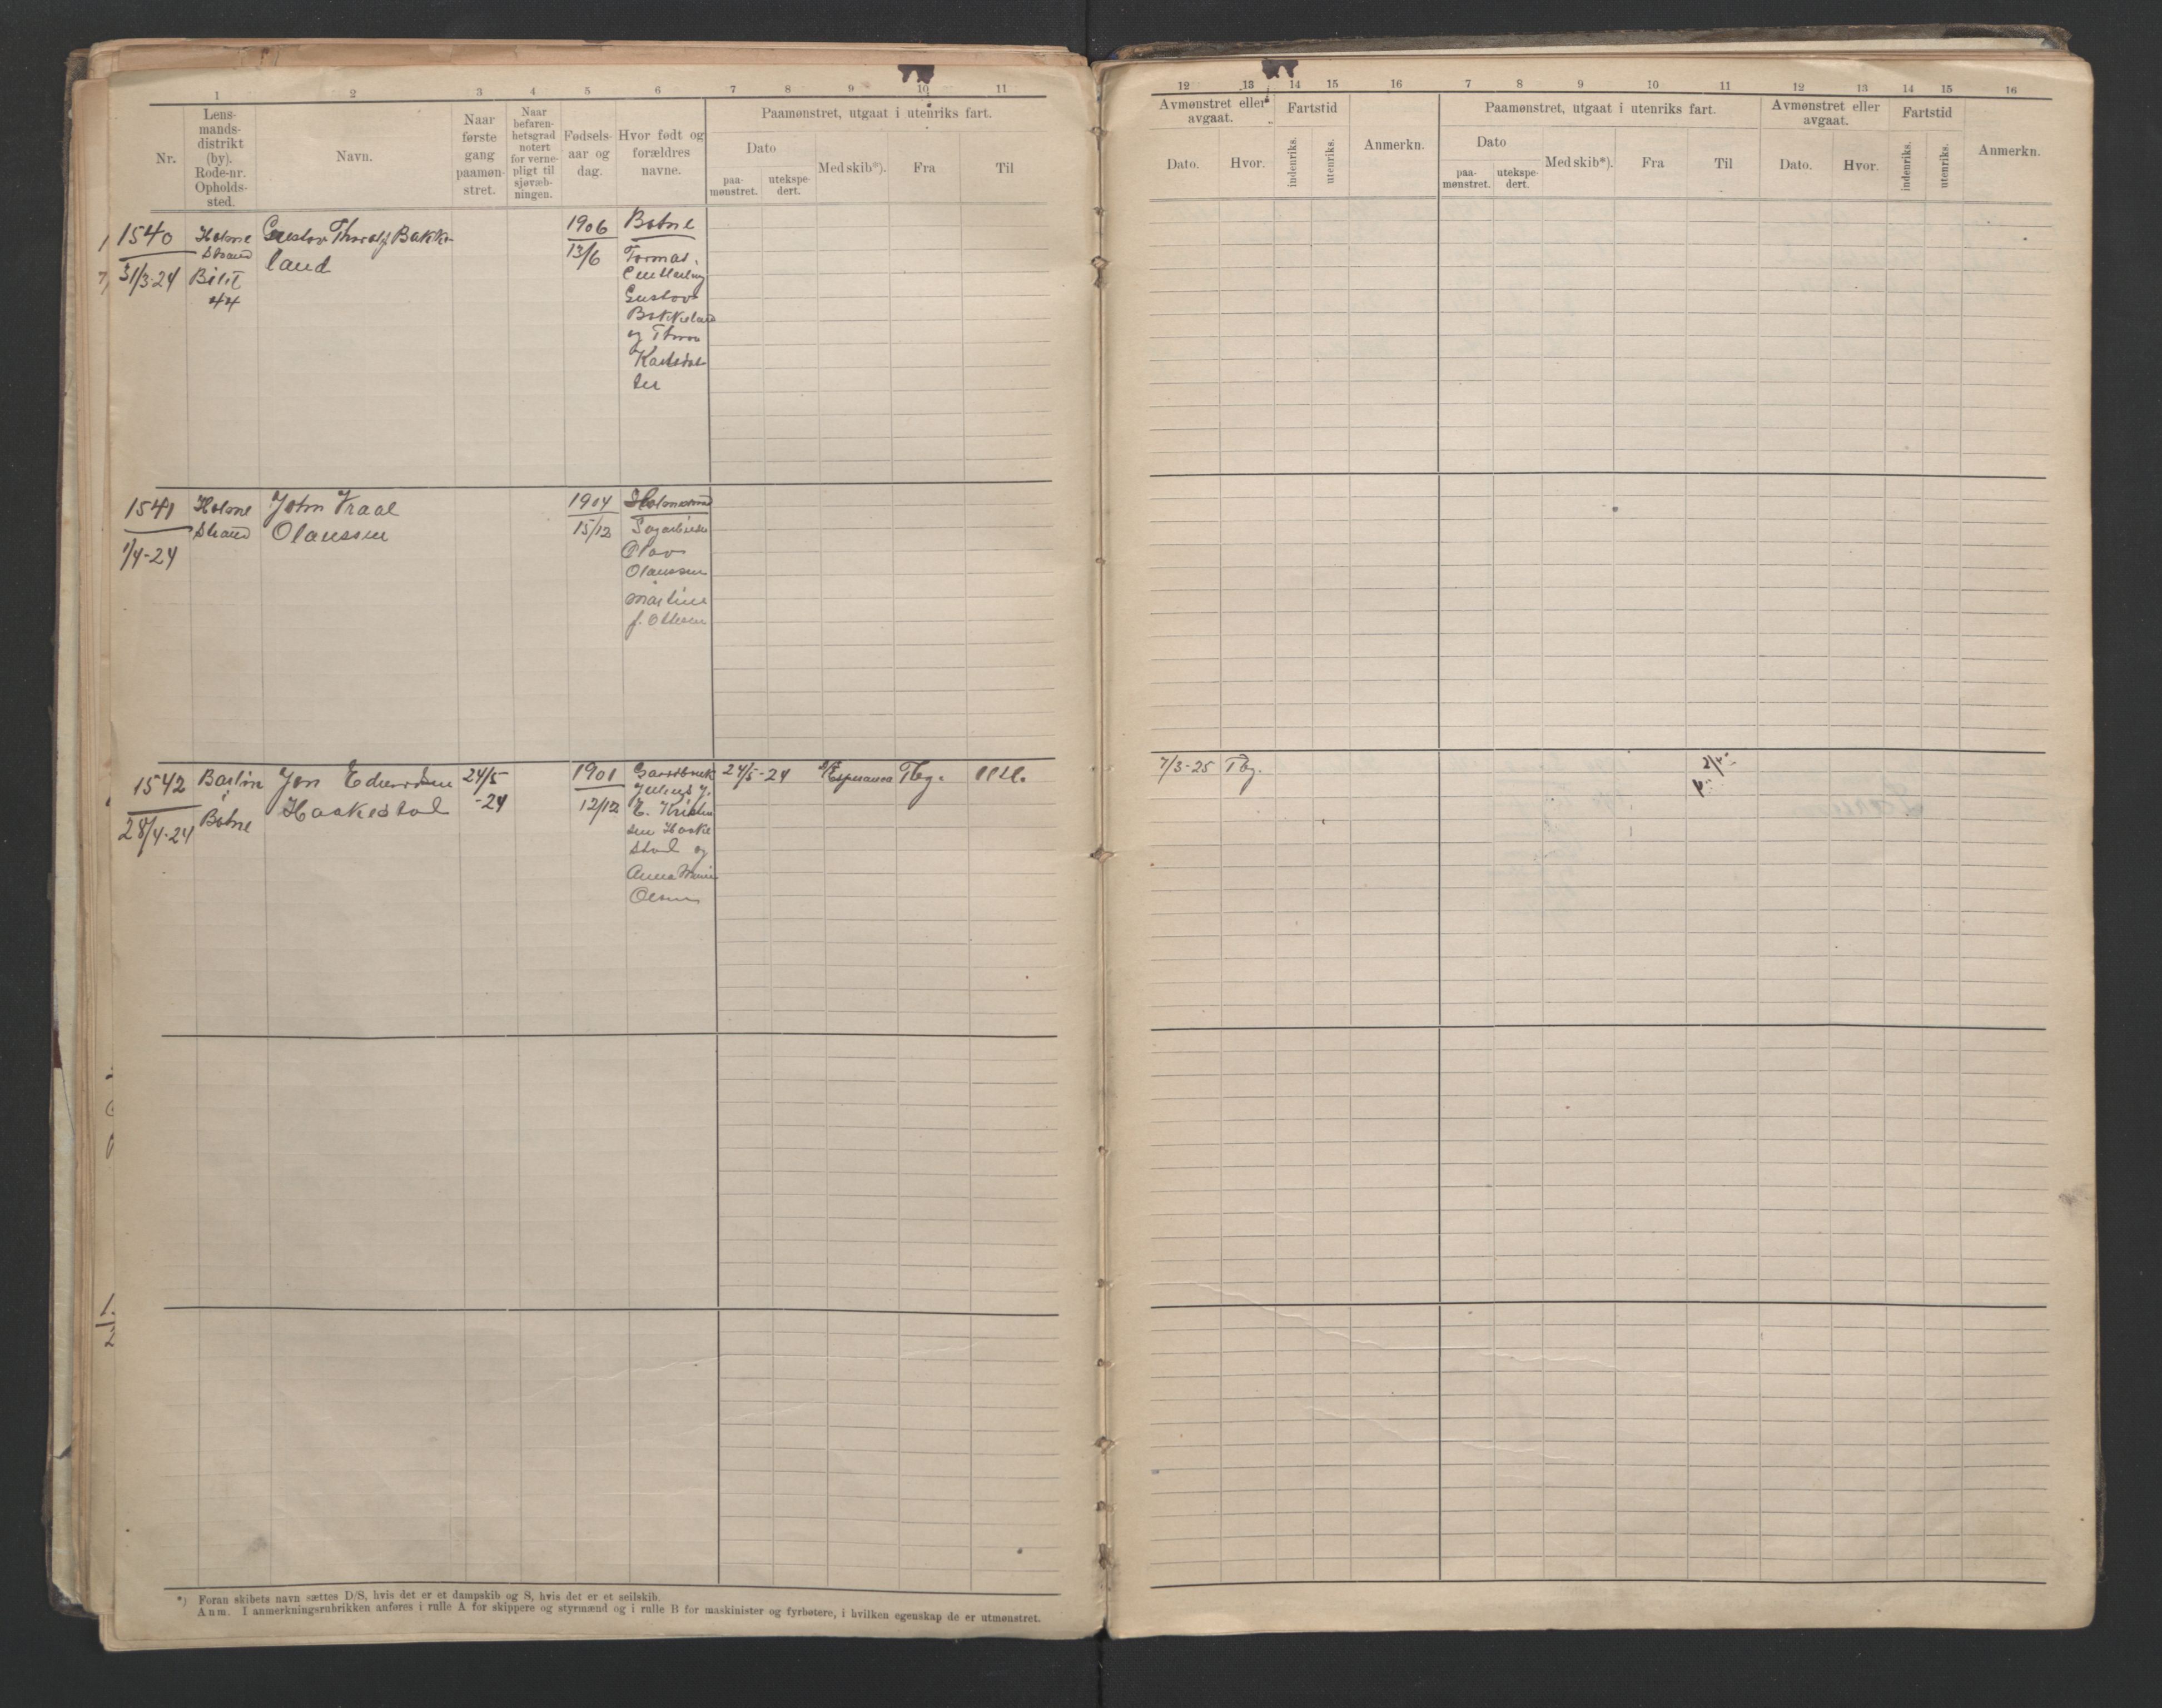 1 2 3 4 5 6 7 8 9 10 11
Nr.
Lens-
mands-
distrikt
(by).
Rode-nr.
Opholds-
sted.
Navn.
Naar
første
gang
paamøn-
stret.
Naar
befaren-
hetsgrad
notert
for verne-
pligt til
sjøvæb-
ningen.
Fødsels-
aar og
dag.
Hvor født og
forældres
navne.
Paamønstret, utgaat i utenriks fart.
Dato
paa-
mønstret.
utekspe-
dert.
Med skib*).
Fra
Til
1540
31/3-24
Holme
strand
Gustav Thoralf Bakke-
land
1906
13/6
Botne
Gustav
Bakkeland
og
1541
1/4-24
Holme
strand
John
Olaussen
1904
15/12
Holmestrand
Olav
Olaussen
Martine
f. Ottesen
1542
28/4-24
i
Botne
Haakestad
24/5
-24
1901
12/12
Gaardbruk
E. Kristen
sen Haake
stad og
Anna
Olsen
24/5-24
Esperanca
Tbg.
*) Foran skibets navn sættes D/S, hvis det er et dampskib og S, hvis det er et seilskib.
Anm. I anmerkningsrubrikken anføres i rulle A for skippere og styrmænd og i rulle B for maskinister og fyrbøtere, i hvilken egenskap de er utmønstret.
12 13 14 15 16 7 8 9 10 11 12 13 14 15 16
Avmønstret eller
avgaat.
Dato.
Hvor.
Fartstid
indenriks.
utenriks.
Anmerkn.
Paamønstret, utgaat i utenriks fart.
Dato
paa-
mønstret.
utekspe-
dert.
Med skib*).
Fra
Til
Avmønstret eller
avgaat.
Dato.
Hvor.
Fartstid
indenriks.
utenriks.
Anmerkn.
7/3-25 Tbg.